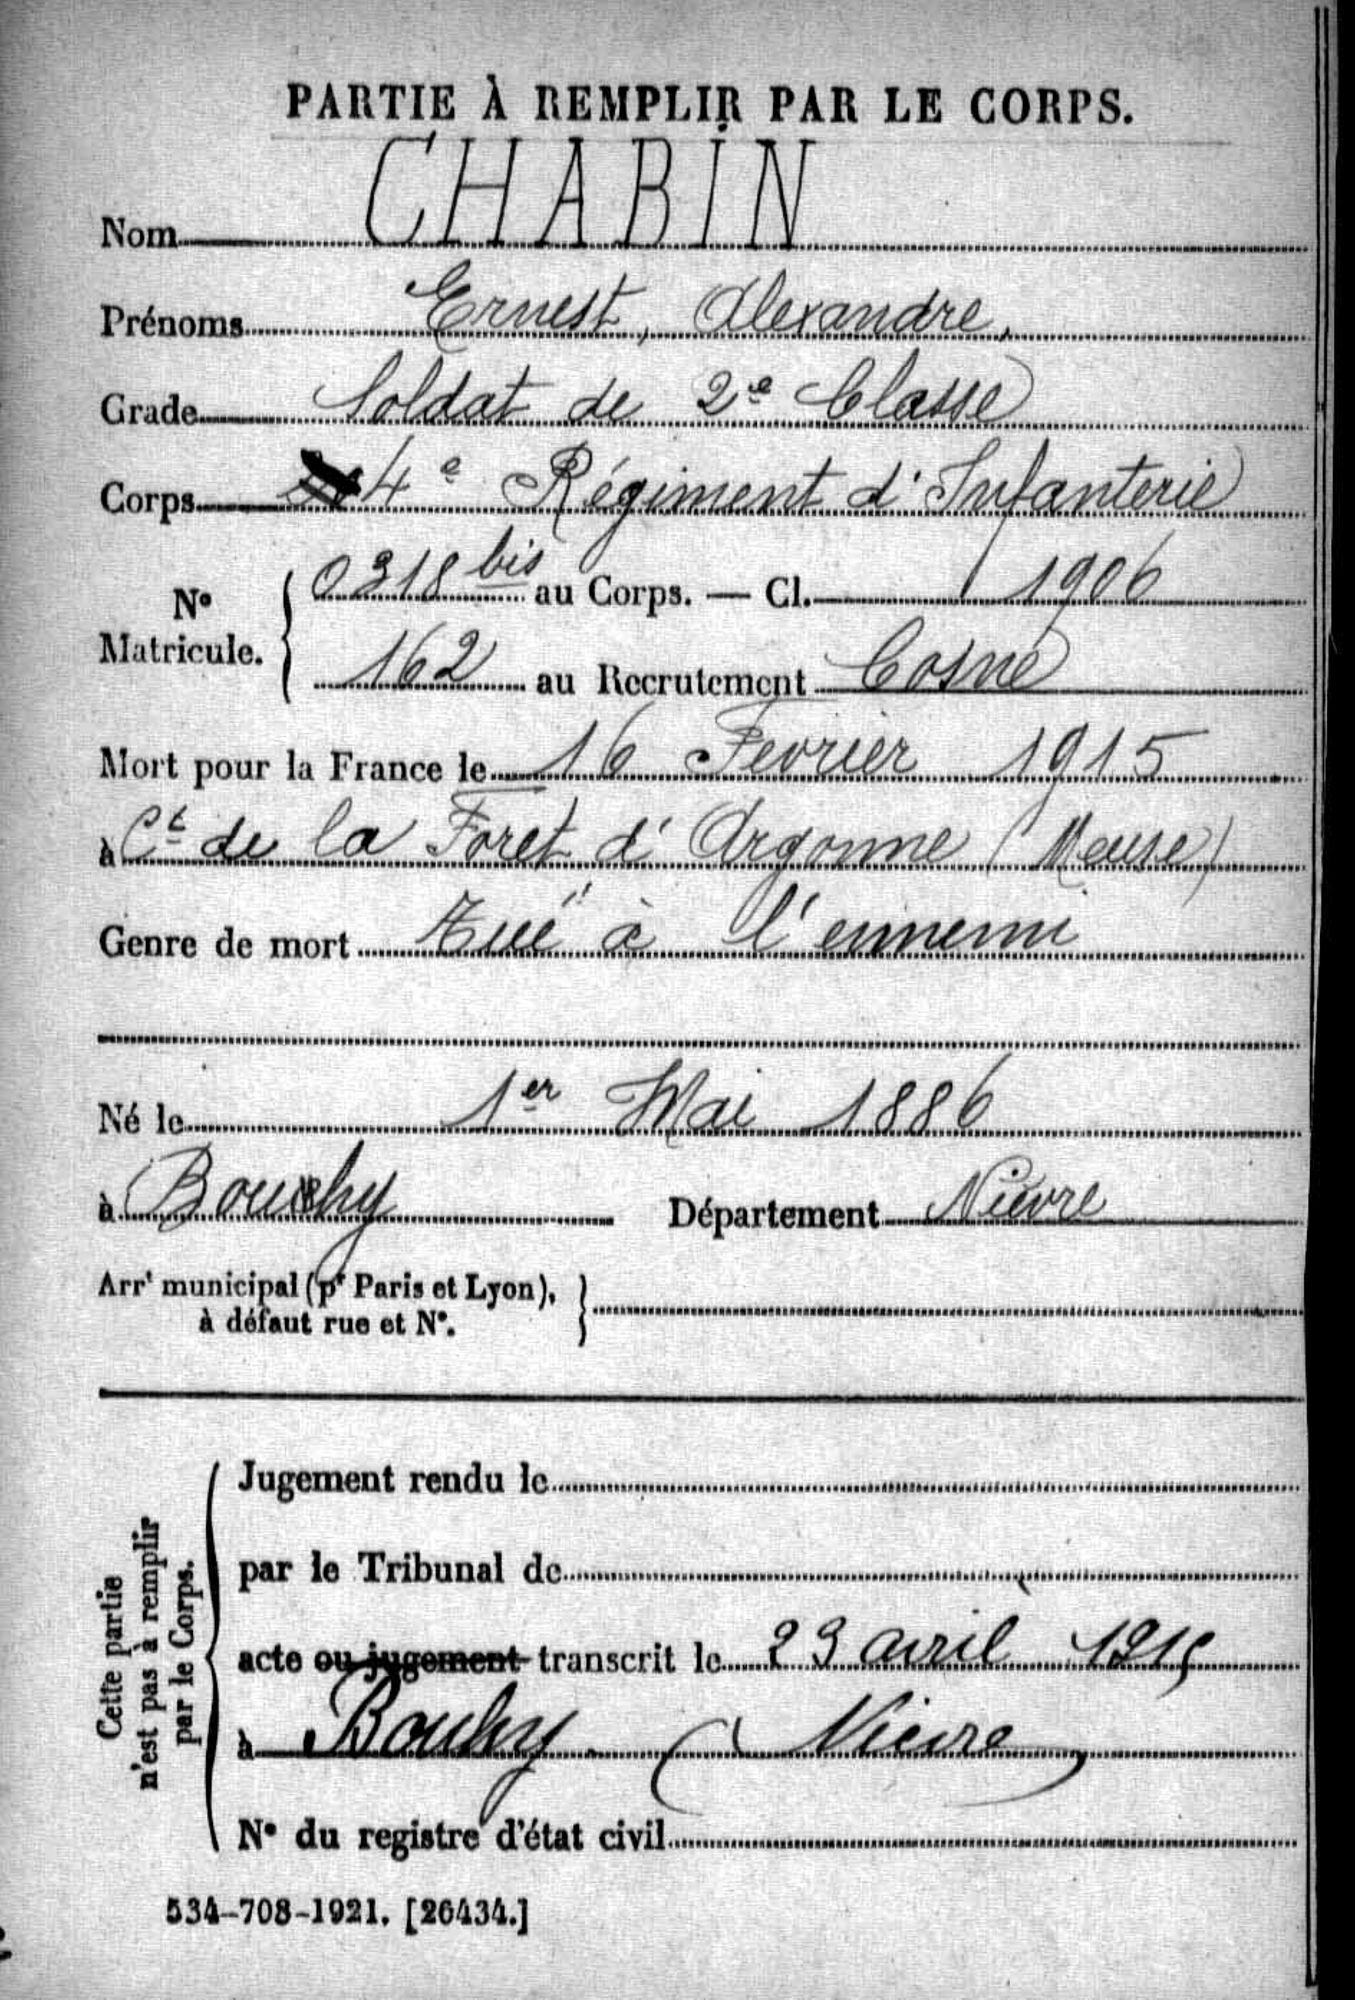 PARTIE À REMPLIR PAR LE CORPS.
Nom CHABIN
Prénoms Ernest, Alexandre,
Grade Soldat de 2e Classe
Corps 4e Régiment d'Infanterie
No Matricule. { 0318 bis au Corps. — Cl. 1906
162 au Recrutement Cosne
Mort pour la France le 16 Fevrier 1915
à Ct de la Foret d'Argonne (Meuse)
Genre de mort Tué à l'ennemi
Né le 1er Mai 1886
à Bouhy Département Nièvre
Arrt municipal (pr Paris et Lyon), }
à défaut rue et No.
Cette partie
n'est pas à remplir
par le Corps.
Jugement rendu le
par le Tribunal de
acte ou jugement transcrit le 23 avril 1915
à Bouhy (Nièvre)
No du registre d'état civil
534-708-1921. [26434.]